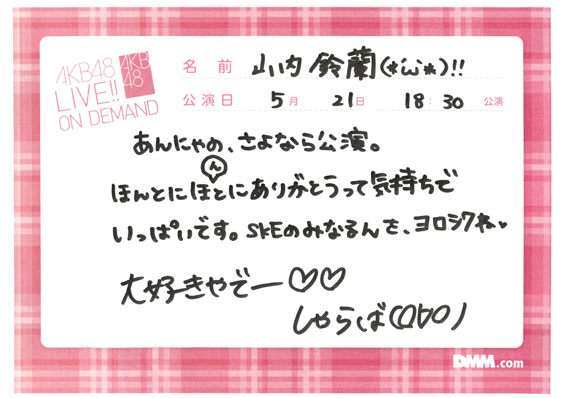 AKB48
LIVE!!
ON DEMAND
AKB
48
名 前 山内 鈴蘭(*'ω'*)!!
公演日 5月 21日 18:30 公演
あんにゃの、さよなら公演。
ん
ほんとにほとにありがとうって気持ちで
いっぱいです。SKEのみなるんを、ヨロシクね♥
大好きやでー♡♡
しゃらば(Q∀O)ノ
DMM.com